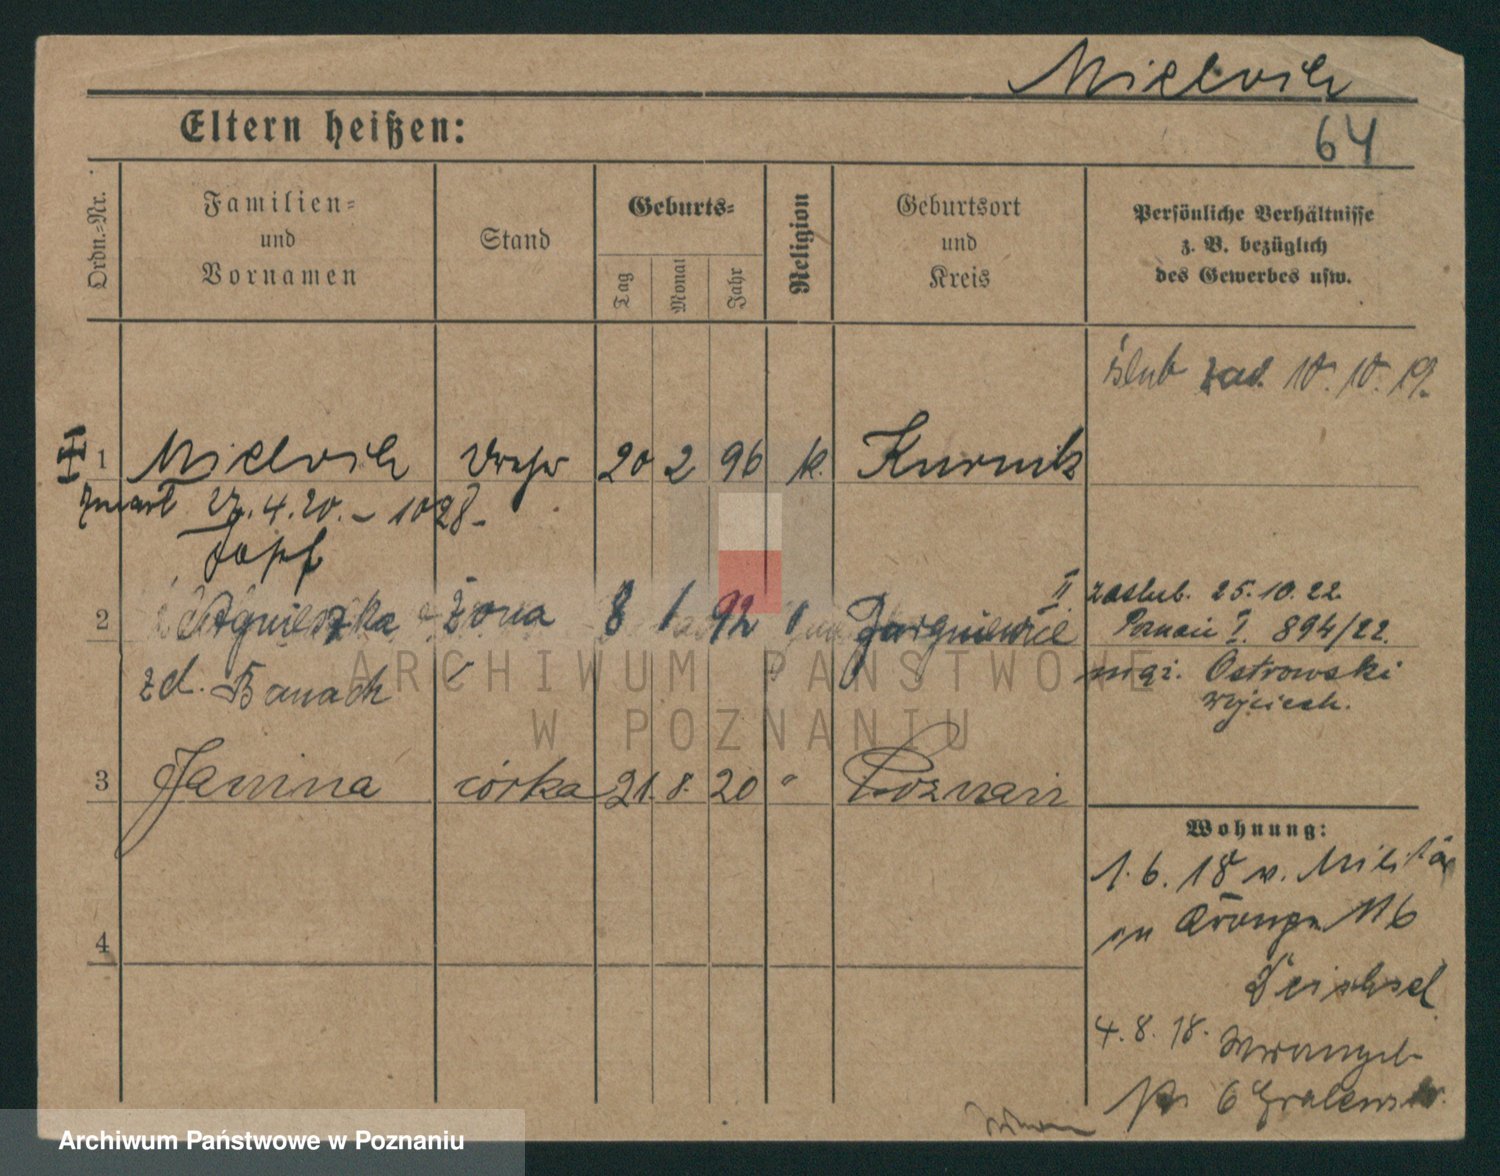 Eltern heißen:
64
Ordn.-Nr.
Familien-
und
Vornamen
Stand
Geburts-
Tag
Monat
Jahr
Religion
Geburtsort
und
Kreis
Persönliche Verhältnisse
z. B. bezüglich
des Gewerbes usw.
ślub zaw. 10. 10. 19.
1 20 2 96 k. Kurnik
zmarł 27.4.20. – 1028 –
Josef
2 Agnieszka żona 8 1 92
II zaślub. 25.10.22.
Poznań I. 894/22.
zd. Banach
mąż. Ostrowski
Wojciech.
3 Janina córka 21. 8. 20 " Poznań
Wohnung:
1. 6. 18 v. Militär
4
4. 8. 18. Wrangel-
6
ARCHIWUM PAŃSTWOWE
W POZNANIU
Archiwum Państwowe w Poznaniu